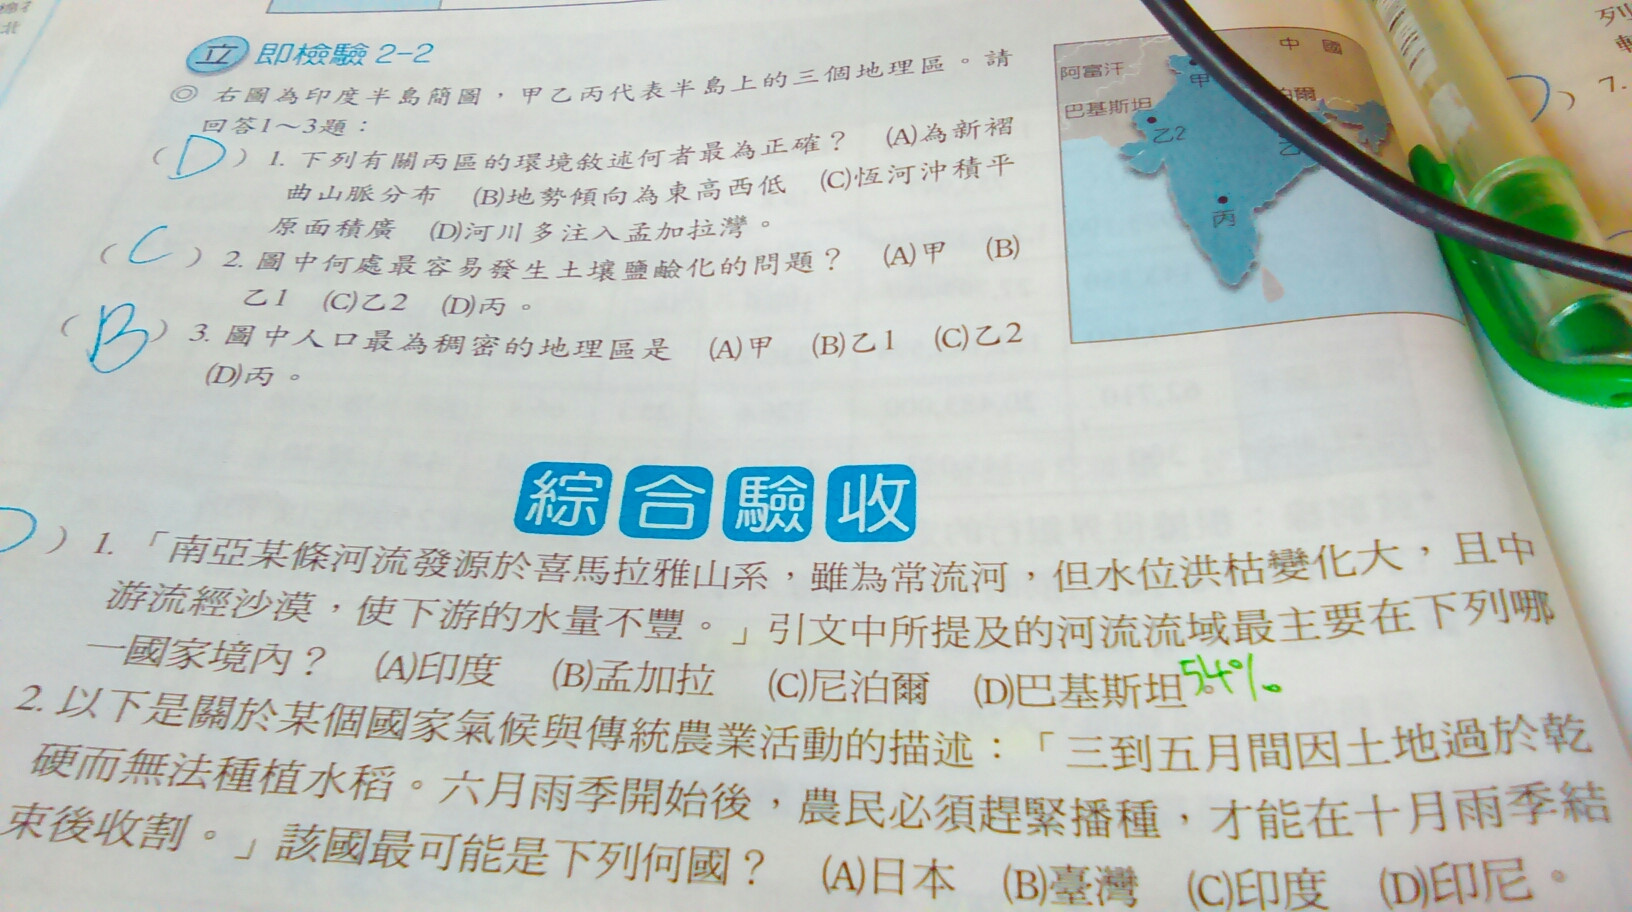 北
立即檢驗2-2
◎ 右圖為印度半島簡圖，甲乙丙代表半島上的三個地理區。請
回答1～3題：
（D）1. 下列有關丙區的環境敘述何者最為正確？ (A)為新褶
曲山脈分布 (B)地勢傾向為東高西低 (C)恆河沖積平
原面積廣 (D)河川多注入孟加拉灣。
（C）2. 圖中何處最容易發生土壤鹽鹼化的問題？ (A)甲 (B)
乙1 (C)乙2 (D)丙。
（B）3. 圖中人口最為稠密的地理區是 (A)甲 (B)乙1 (C)乙2
(D)丙。
中國
阿富汗
甲
巴基斯坦
泊爾
乙2
乙
丙
列
）7.
綜合驗收
）1. 「南亞某條河流發源於喜馬拉雅山系，雖為常流河，但水位洪枯變化大，且中
游流經沙漠，使下游的水量不豐。」引文中所提及的河流流域最主要在下列哪
一國家境內？ (A)印度 (B)孟加拉 (C)尼泊爾 (D)巴基斯坦54%。
2. 以下是關於某個國家氣候與傳統農業活動的描述：「三到五月間因土地過於乾
硬而無法種植水稻。六月雨季開始後，農民必須趕緊播種，才能在十月雨季結
束後收割。」該國最可能是下列何國？ (A)日本 (B)臺灣 (C)印度 (D)印尼。